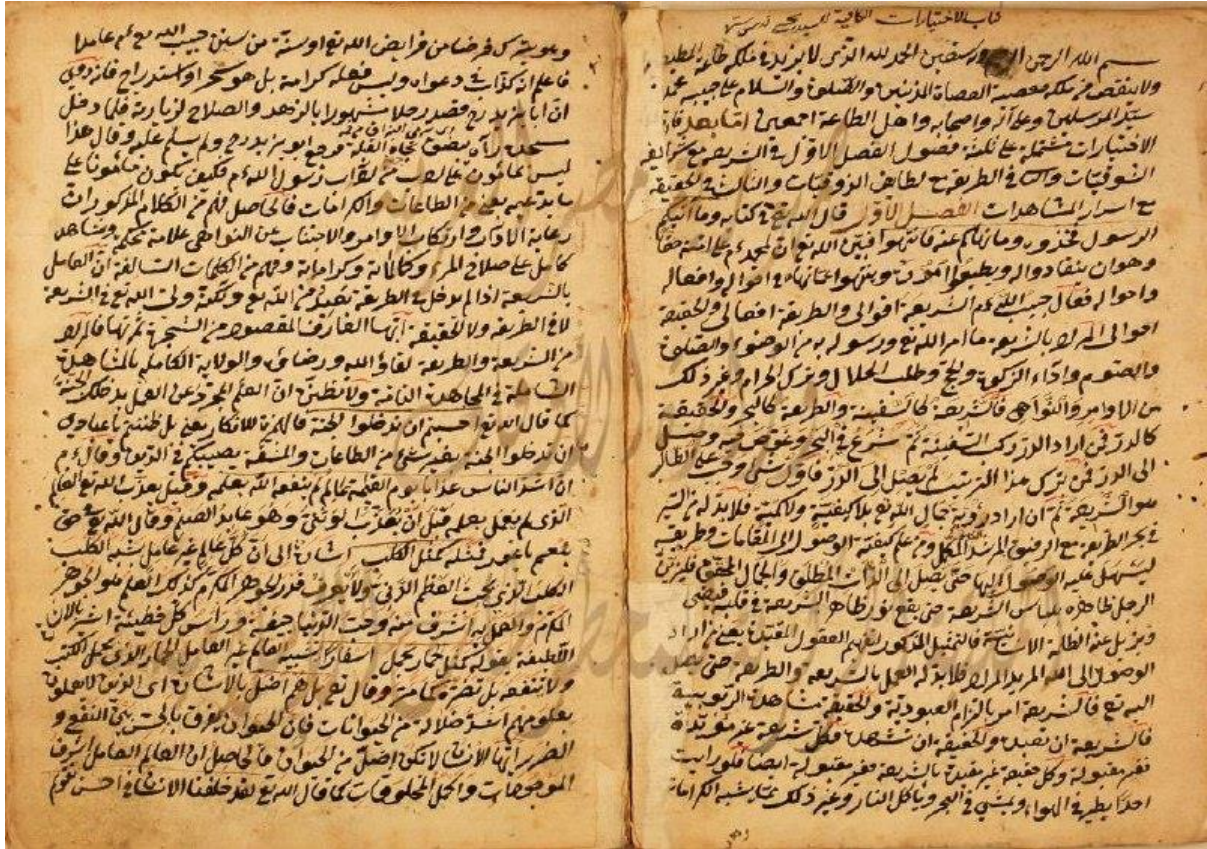 كتاب الاختيارات الكافية للسيد يحيى قدس سره
بسم الله الرحمن وبه نستعين الحمد لله الذى لا يزيد فى ملكه طاعة المطيع
ولا ينقص من ملكه معصية العصاة المذنبين والصلوة والسلام على حبيبه محمد
سيد المرسلين وعلى آله واصحابه واهل الطاعة اجمعين اما بعد فان
الاختيارات مشتملة على ثلثة فصول الفصل الاول فى الشريعة مع شرائف
الشوقيات والثانى فى الطريقة مع لطائف الذوقيات والثالث فى الحقيقة
مع اسرار المشاهدات الفصل الاول قال الله تع فى كتابه وما آتيكم
الرسول فخذوه وما نهاكم عنه فانتهوا فبين الله تع ان لمحمد ءم على امته حقا
وهو ان ينقادوا له ويطيعوا امره وينتهوا عما نهاه فى اقواله وافعاله
واحواله فقال حبيب الله ءم الشريعة اقوالى والطريقة افعالى والحقيقة
احوالى المراد بالشريعة ما امر الله تع ورسوله به من الوضوء والصلوة
والصوم واداء الزكوة والحج وطلب الحلال وترك الحرام وغير ذلك
من الاوامر والنواهى فالشريعة كالسفينة والطريقة كالبحر والحقيقة
كالدر فمن اراد الدر ركب السفينة ثم شرع فى البحر وغوص فيه وصل
الى الدر فمن ترك هذا الترتيب لم يصل الى الدر فاول شئ وجب على الطالب
هو الشريعة ثم ان اراد رؤية جمال الله تع بلا كيفية ولا كمية فلا بد له من السير
فى بحر الطريقة مع الرفيق المرشد المكمل ومن علم كيفية الوصول الى المقامات وطريقه
ليسهل عليه الوصول اليها حتى يصل الى الذات المطلق والجمال المحقق فليزين
الرجل ظاهره بلباس الشريعة حتى يقع نور ظاهر الشريعة فى قلبه فيضئ
ويزيل عنه الظلمة الانسانية فالتمثيل المذكور لفهم العقول المقيدة يعنى من اراد
الوصول الى الله المريد المراد فلا بد له العمل بالشريعة والطريقة حتى يصل
اليه تع فالشريعة امر بالزام العبودية والحقيقة مشاهدة الربوبية
فالشريعة ان تعبده والحقيقة ان تشهده فكل شريعة غير مؤيدة
فغير مقبولة وكل حقيقة غير مقيدة بالشريعة فغير مقبولة ايضا فلو رأيت
احدا يطير فى الهواء ويمشى فى البحر وياكل النار وغير ذلك مما يشبه الكرامات
وهو يترك فرضا من فرايض الله تع او سنة من سنن حبيب الله تع ءم عامدا
فاعلم انه كذاب فى دعواه وليس فعله كرامة بل هو سحر او استدراج فانه روى
ان ابا يزيد رح قصد رجلا مشهورا بالزهد والصلاح لزيارته فلما دخل
مسجده رآه يبصق تجاه القبلة فرجع ابو يزيد رح ولم يسلم عليه وقال هذا
ليس بمأمون على ادب من آداب رسول الله ءم فكيف يكون مأمونا على
ما يدعيه يعنى من الطاعات والكرامات فالحاصل لهم من الكلام المذكورات
رعاية الاداب وارتكاب الاوامر والاجتناب عن النواهى علامة محكمة وشاهد
كامل على صلاح المرء وكمالاته وكراماته وفهم من الكلمات السالفة ان العامل
بالشريعة اذا لم يدخل فى الطريقة
لا فى الطريقة ولا الحقيقة ايها العارف المقصود من الشجرة ثمرتها فالمراد
من الشريعة والطريقة لقاؤ الله ورضاؤه والولاية الكاملة بالمشاهدة
الشاملة فى المجاهدة التامة ولا تظنن ان العلم المجرد عن العمل يدخلك الجنة
كما قال الله تع احسبتم ان تدخلوا الجنة فالهمزة للانكار يعنى بل ظننتم يا عبادى
ان تدخلوا الجنة بغير شئ من الطاعات والمشقة يصيبكم فى الدين وقال ءم
ان اشد الناس عذابا يوم القيمة عالم لم ينفعه الله بعلمه وقيل يعذب الله تع العالم
الذى لم يعمل بعلمه قبل ان يعذب الوثنى وهو عابد الصنم وقال الله تع فى حق
بلعم باعور فمثله كمثل الكلب اشارة الى ان كل عالم غير عامل يشبه الكلب
الكلب الذى يحب العظم الدنى ولا يعرف قدر الجوهر المكرم كذلك العلم هو الجوهر
المكرم والعمل به اشرف منه وحب الدنيا جيفة ورأس كل خطيئة اشير الآن
اللطيفة بقوله كمثل الحمار يحمل اسفارا شبيه العالم غير العامل بالحمار الذى يحمل الكتب
ولا تنفعه بل تضره كامنة وقال تع بل هم اضل بالاشارة اى الذين لا يعملون
بعلومهم اشد ضلالة من الحيوانات فان الحيوان يفرق بالحس بين النفع و
الضرر ايها الانسان لا تكن اضل من الحيوان فالحاصل ان العالم العامل اشرف
الموجودات واكمل المخلوقات كما قال الله تع لقد خلقنا الانسان فى احسن تقويم